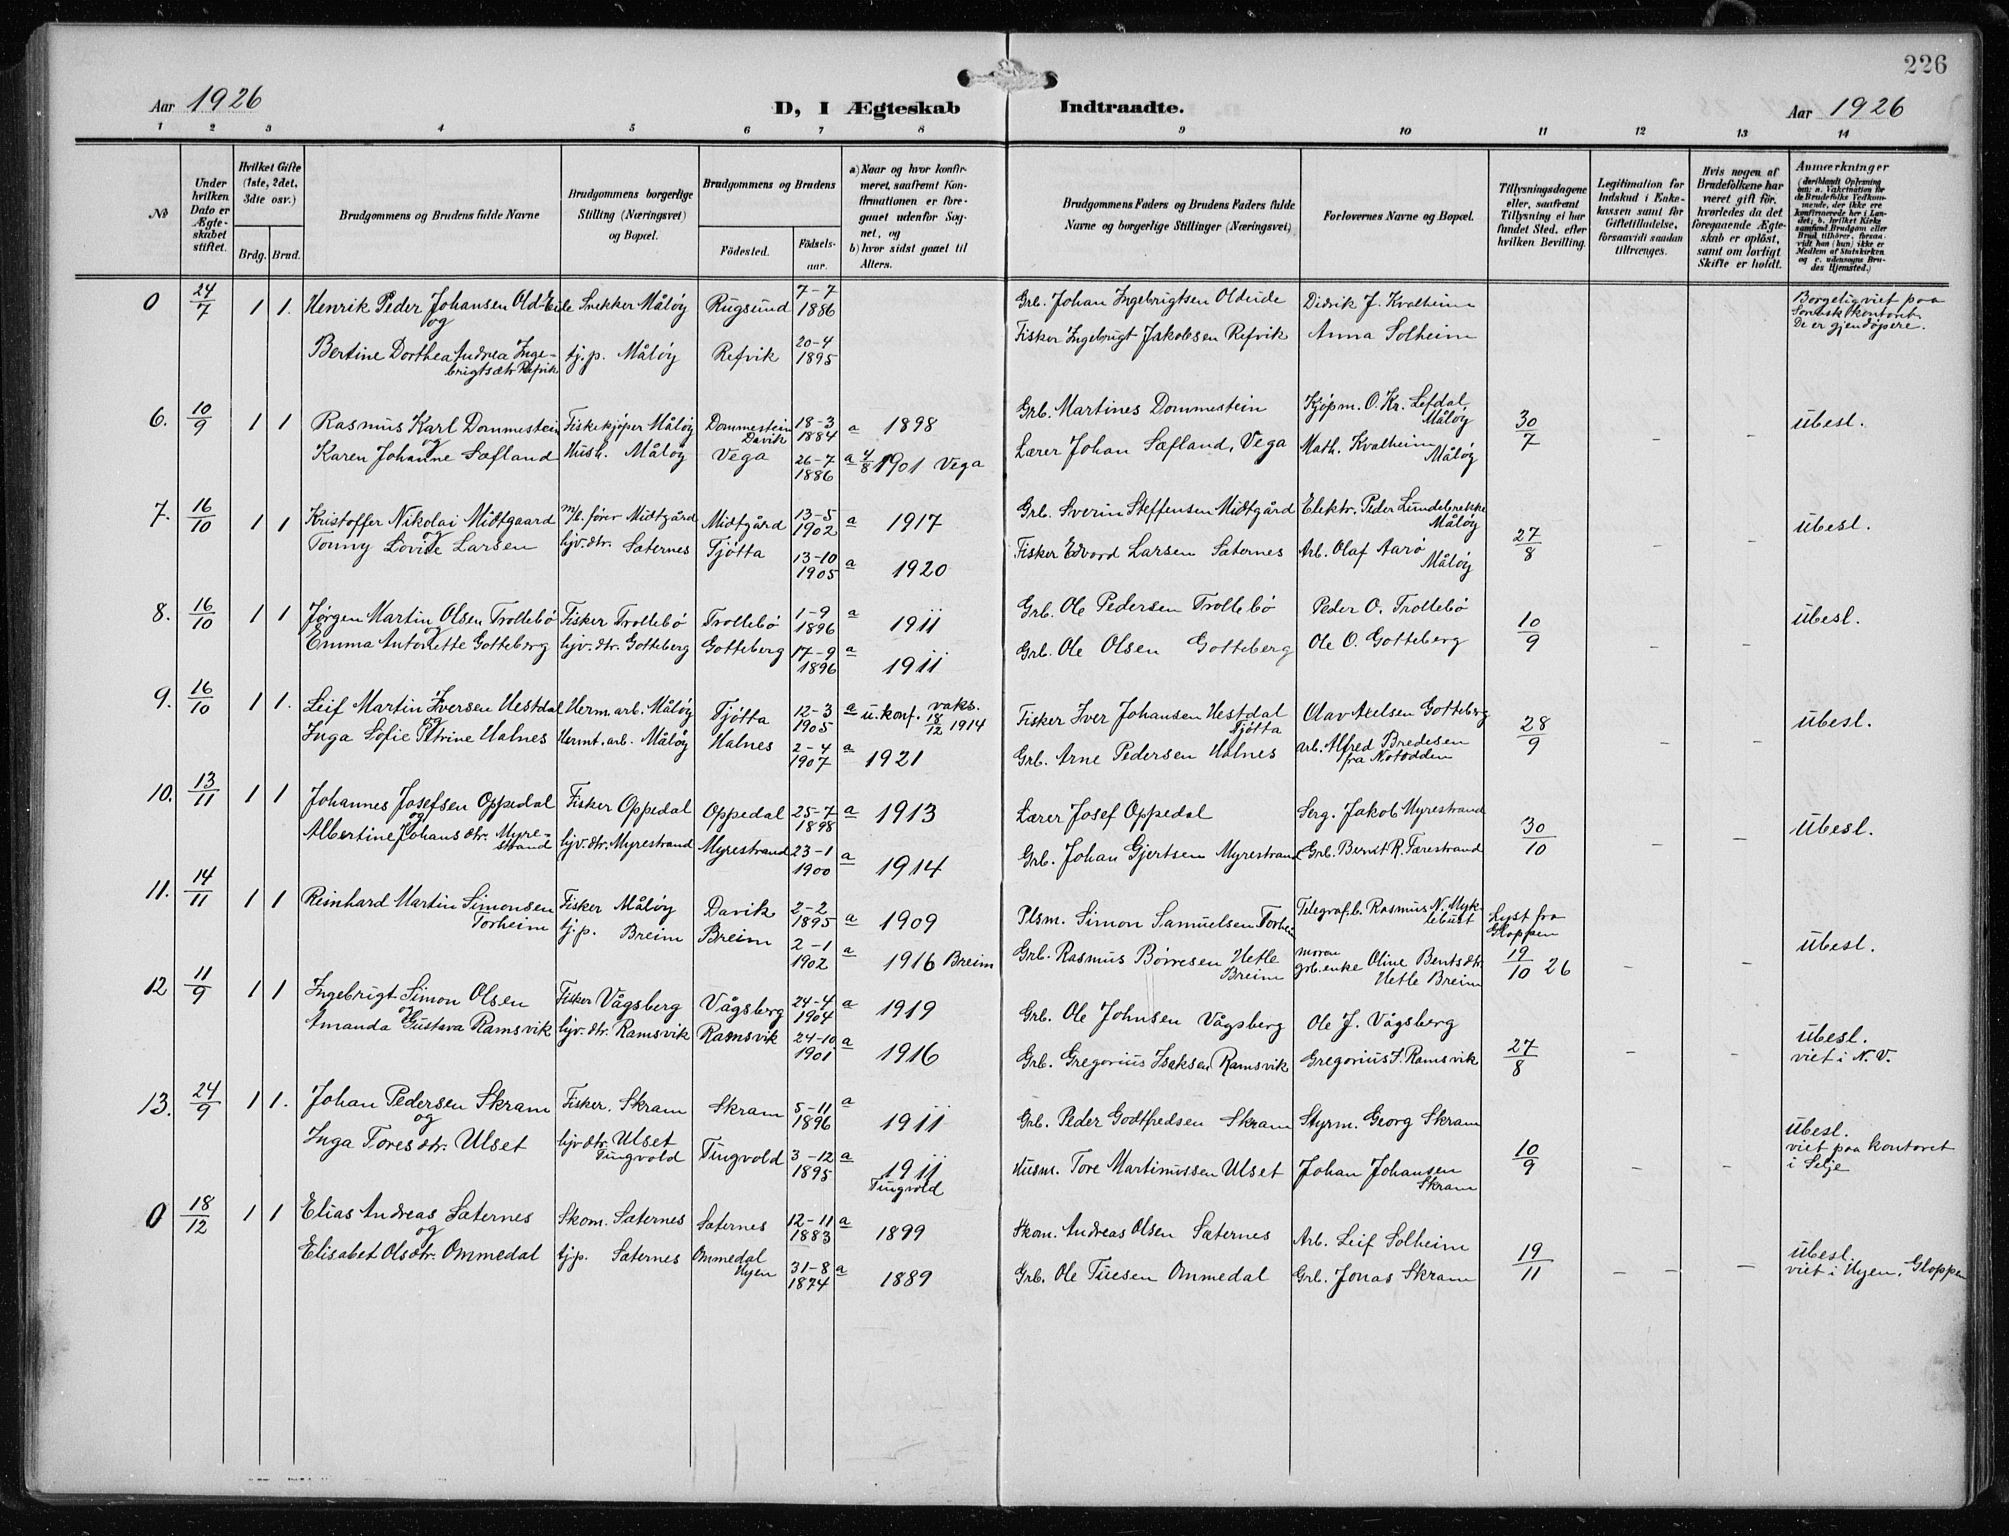 226
Aar 1926
D, I Ægteskab Indtraadte.
Aar 1926
1 2 3 4 5 6 7 8 9 10 11 12 13 14
No
Under hvilken Dato er Ægteskabet stiftet.
Hvilket Gifte (1ste, 2det, 3die osv.)
Brdg. Brud.
Brudgommens og Brudens fulde Navne
Brudgommens borgerlige Stilling (Næringsvei) og Bopæl.
Brudgommens og Brudens
Födested.
Födselsaar.
a) Naar og hvor konfirmeret, saafremt Konfirmationen er foregaaet udenfor Sognet, og
b) hvor sidst gaaet til Alters.
Brudgommens Faders og Brudens Faders fulde Navne og borgerlige Stillinger (Næringsvei)
Forlovernes Navne og Bopæl.
Tillysningsdagene eller, saafremt Tillysning ei har fundet Sted, efter hvilken Bevilling.
Legitimation for Indskud i Enkekassen samt for Giftetilladelse, forsaavidt saadan tiltrænges.
Hvis nogen af Brudefolkene har været gift för, hvorledes da det foregaaende Ægteskab er oplöst, samt om lovligt Skifte er holdt.
Anmærkninger
(deriblandt Oplysning om: a. Vakcination for de Brudefolks Vedkommende, der ikke ere konfirmerede her i Landet; b. hvilket Kirkesamfund Brudgom eller Brud tilhörer, forsaavidt han (hun) ikke er Medlem af Statskirken og c. udensogns Brudes Hjemsted.)
0 24/7 1 1. Henrik Peder Johansen Old-Eide Snekker Måløy Rugsund 7-7 1886 Grb. Johan Ingebrigtsen Oldeide Didrik J. Kvalheim Borgelig viet paa
og Sorenskr kontoret.
De er gjendøpere.
Bertine Dorthea Andrea Inge- tj.p. Måløy Refvik 20-4 1895 Fisker Ingebrigt Jakobsen Refvik Anna Solheim
brigtsdtr Refvik
6. 10/9 1 1 Rasmus Karl Dommestein Fiskekjøper Måløy Dommestein Davik 18-3 1884 a 1898 Grb. Martines Dommestein Kjøpm. O. Kr. Lefdal, Måløy 30/7 - - ubesl.
og
Karen Johanne Sæfland Hush. Måløy Vega 26-7 1886 a 4/8 1901 Vega Lærer Johan Sæfland, Vega Math. Kvalheim Måløy
7. 16/10 1 1 Kristoffer Nikolai Midtgaard m/b. fører Midtgård Midtgård 13-5 1902 a 1917 Grb. Sverin Steffensen Midtgård Elektr. Peder Lundebrekke Måløy 27/8 - - ubesl.
og
Tonny Lovise Larsen hjv. dtr. Sæternes Tjøtta 13-10 1905 a 1920 Fisker Edvard Larsen Sæternes Arb. Olaf Aarø Måløy
8. 16/10 1 1 Jørgen Martin Olsen Trollebø Fisker Trollebø Trollebø 1-9 1896 a 1911 Grb. Ole Pedersen Trollebø Peder O. Trollebø 10/9 - - ubesl.
og
Emma Antonette Gotteberg hjv. dtr. Gotteberg Gotteberg 17-9 1896 a 1911 Grb. Ole Olsen Gotteberg Ole O. Gotteberg
9. 16/10 1 1. Leif Martin Iversen Hestdal Herm. arb. Måløy Tjøtta 12-3 1905 a u. konf. vaks. 18/12 1914 Fisker Iver Johansen Hestdal Tjøtta Olav Axelsen Gotteberg 28/9 - - ubesl.
og
Inga Sofie Petrine Halnes Hermt. arb. Måløy Halnes 2-4 1907 a 1921 Grb. Arne Pedersen Halnes arb. Alfred Bredesen fra Notodden
10. 13/11 1 1 Johannes Josefsen Oppedal Fisker Oppedal Oppedal 25-7 1898 a 1913 Lærer Josef Oppedal Serg. Jakob Myrestrand 30/10 - - ubesl.
og
Albertine Johansdtr. Myre- hjv. dtr. Myrestrand Myrestrand 23-1 1900 a 1914 Grb. Johan Gjertsen Myrestrand Grb. Bernt R. Færestrand
strand
11. 14/11 1 1 Reinhard Martin Simonsen Fisker Måløy Davik 2-2 1895 a 1909 Plsm. Simon Samuelsen Torheim Telegraf.b. Rasmus N. Myklebust Lyst fra Gloppen
Torheim tj.p. Breim Breim 2-1 1902 a 1916 Breim Grb. Rasmus Børresen Hetle Breim moren grb. enke Oline Bentsdtr. Hetle Breim 19/10 26 - - ubesl.
12 11/9 1 1 Ingebrigt Simon Olsen Fisker Vågsberg Vågsberg 24-4 1904 a 1919 Grb. Ole Johnsen Vågsberg Ole J. Vågsberg
og
Amanda Gustava Ramsvik hjv. dtr. Ramsvik Ramsvik 24-10 1901 a 1916 Grb. Gregorius Isaksen Ramsvik Gregorius I. Ramsvik 27/8 - - ubesl. viet i N. V.
13. 24/9 1 1. Johan Pedersen Skram Fisker. Skram Skram 5-11 1896 a 1911 Grb. Peder Godtfredsen Skram Styrm. Georg Skram 10/9 - - ubesl. viet paa kontoret i Selje
og
Inga Toresdtr. Ulset hjv. dtr. Ulset Tingvold Tingvold 3-12 1895 a 1911 Tingvold Husm. Tore Martinussen Ulset Johan Johansen Skram
0 18/12 1 1 Elias Andreas Sæternes Skom. Sæternes Sæternes 12-11 1883 a 1899 Skom. Andreas Olsen Sæternes Arb. Leif Solheim 19/11 - - - ubesl. viet i Hyen, Gloppen
og
Elisabet Olsdtr. Ommedal tj.p. Sæternes Ommedal Hyen 31-8 1874 a 1889 Grb. Ole Tuesen Ommedal Grb. Jonas Skram